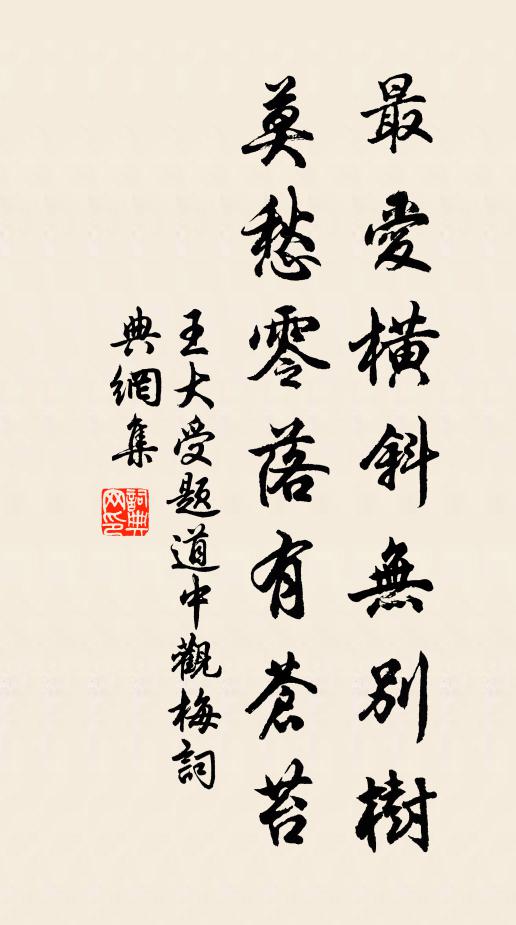 最愛橫斜無別樹
莫愁零落有蒼苔
王大受題道中觀梅詞
典網集
詞典网印